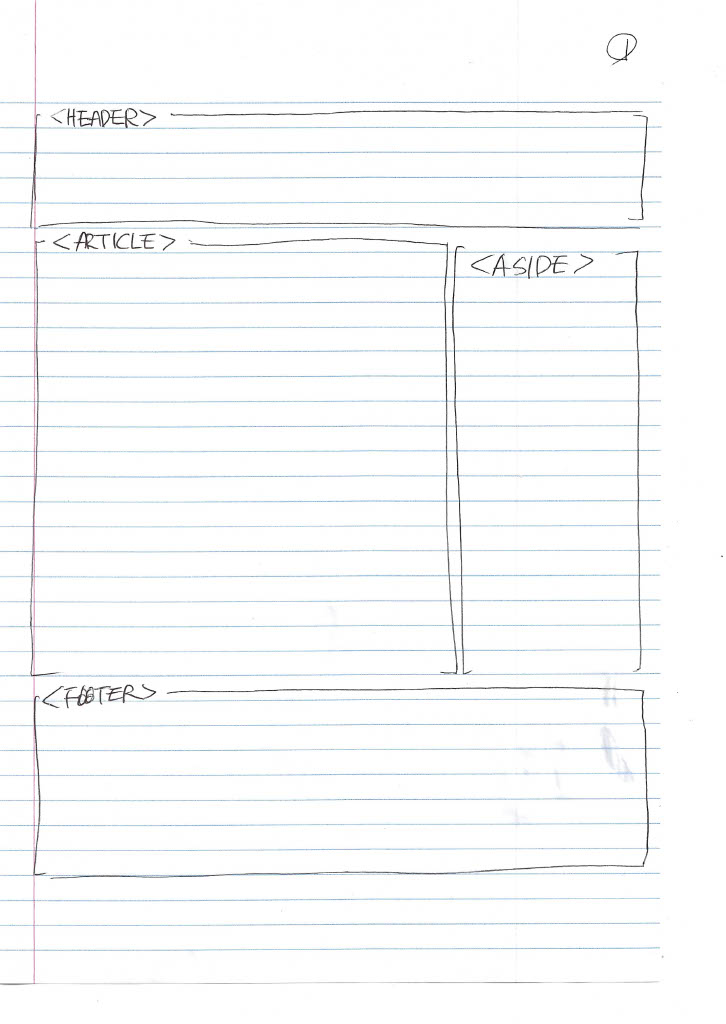 1
<HEADER>
<ARTICLE>
<ASIDE>
<FOOTER>